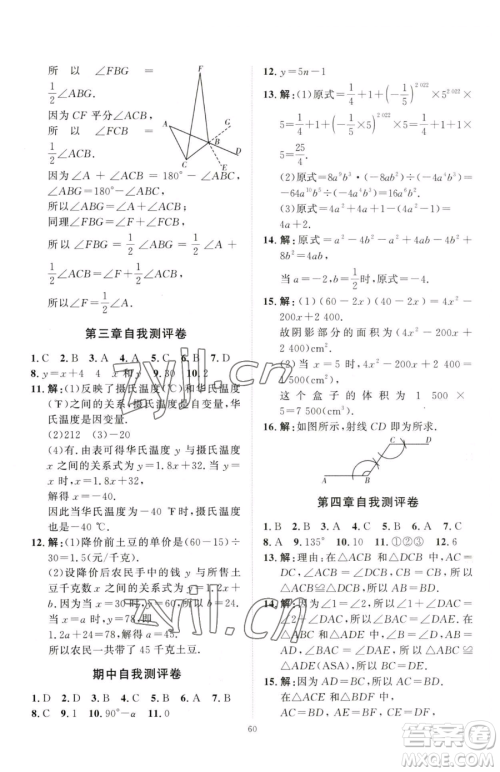 所以 ∠FBG =
1/2∠ABG.
因为 CF 平分∠ACB,
所以 ∠FCB =
1/2∠ACB.
因为∠A+∠ABC+
∠ACB=180°,
所以∠A+∠ACB=180°-∠ABC=
∠ABG.
同理∠FBG=∠F+1/2∠ACB.
所以∠F+1/2∠ACB=1/2∠A+
1/2∠ACB.
所以∠F=1/2∠A.
第三章自我测评卷
1. C 2. B 3. A 4. A 5. C 6. B 7. D
8. y=x+4 4 x和y 9. 30 10. 2
11. 解:(1)反映了摄氏温度(℃)和华氏温度
(℉)之间的关系,摄氏温度是自变量.
(2)212 (3)-20
(4)根据表格可知,华氏温度 y 与摄氏温度
x 之间的关系式为 y=1.8x+32.
令 y=x,则 x=1.8x+32,
解得 x=-40.
因此当华氏温度与摄氏温度的值相等时,
是-40 ℃.
12. 解:(1)降价前土豆的价格为(60-15)÷
30=1.5(元/千克).
(2)设降价后农民手中的钱 y 与所售土
豆千克数 x 之间的关系式为 y=1.2x+b.
因为当 x=30 时,y=60,所以 b=24.
当 x=a 时,y=78,即
1.2a+24=78,解得 a=45.
所以农民一共带了 45 千克土豆.
期中自我测评卷
1. D 2. D 3. C 4. A 5. B 6. B 7. B
8. C 9. 1 10. 90°-α 11. 0
12. y=5n-1
13. 解:(1)原式=1/4+1+(-1/5)^2 022×5^2 022×
5=1/4+1+(-1/5×5)^2 022×
5=25/4.
(2)原式=8a^9b^3·(-8ab^2)÷4a^4b^5=
-64a^10b^5÷4a^4b^5=-16a^6.
(3)原式=4a^2+4a+1-4a^2+1=
4a+2.
14. 解:原式=4a^2-b^2+b^2+4ab-4a^2+
8b^2=4ab+8b^2.
当 a=-2,b=1/2时,原式=-4.
15. 解:(1)(60-2x)(40-2x)=4x^2-
200x+2 400(cm^2).
故阴影部分的面积为(4x^2-200x+
2 400)cm^2.
(2)当 x=5 时,4x^2-200x+2 400=
1 500(cm^2).
这个盒子的体积为 1 500×
5=7 500(cm^3).
16. 解:如图所示,射线 CD 即为所求.
第四章自我测评卷
1. B 2. B 3. B 4. D 5. D 6. C 7. D
8. A 9. 135° 10. 5 11. ①②③ 12. 6
13. 解:理由:在△ACB 与△DCE 中,AC=
DC,∠ACB=∠DCE,CB=CE,所以
△ACB≌△DCE(SAS).所以 AB=DE.
14. 解:因为∠1=∠2,所以∠1+∠DAC=
∠2+∠DAC,所以∠BAC=∠DAE.在
△ABC 和△ADE 中,AB=AD,∠BAC=
∠DAE,AC=AE,所以△ABC≌△ADE.
所以 BC=DE.
15. 解:因为 AD=BE,所以 AD-BD=
BE-BD,即 AB=DE.因为 AC∥DF,
所以∠A=∠EDF.
在△ABC 和△DEF 中,
AC=DF,∠A=∠EDF,AB=DE,
60